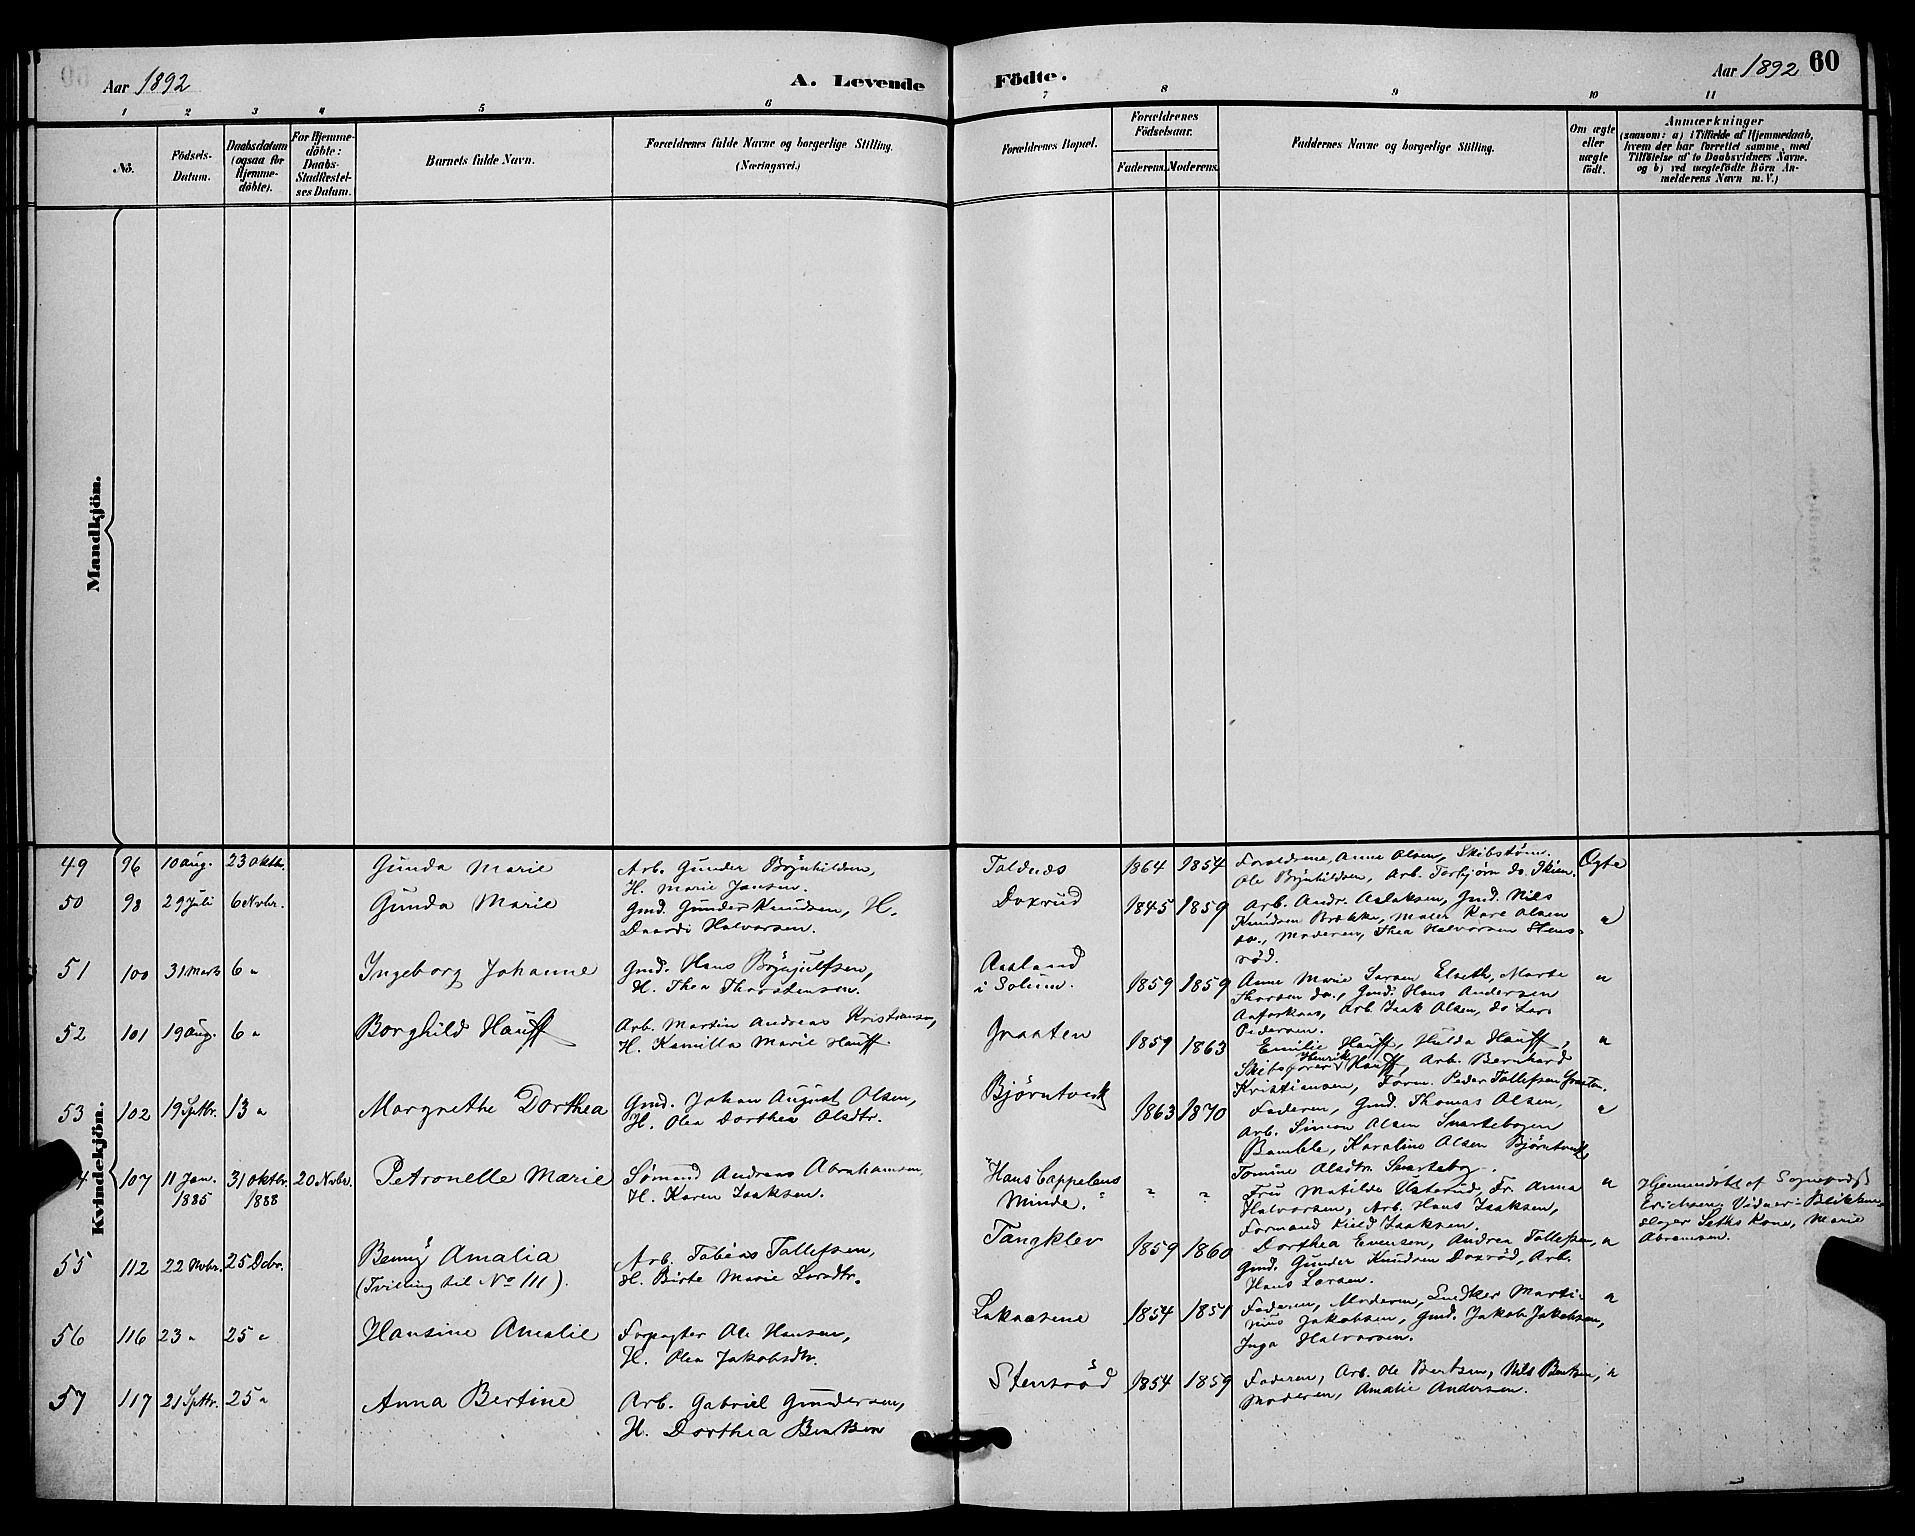 Aar 1892
A. Levende Födte.
Aar 1892 60
1 2 3 4 5 6 7 8 9 10 11
No.
Födsels-
Datum.
Daabsdatum
(ogsaa for
Hjemme-
döbte).
For Hjemme-
döbte:
Daabs-
Stadfæstel-
ses Datum.
Barnets fulde Navn.
Forældrenes fulde Navne og borgerlige Stilling.
(Næringsvei.)
Forældrenes Bopæl.
Forældrenes
Födselsaar.
Faderens. Moderens.
Faddernes Navne og borgerlige Stilling.
Om ægte
eller
uægte
födt.
Anmærkninger
(saasom: a) i Tilfælde af Hjemmedaab,
hvem der har forrettet samme, med
Tilföielse af to Daabsvidners Navne.
og b) ved uægtefödte Börn An-
melderens Navn m. V.)
Mandkjön.
Kvindekjön.
49 96 10 Aug. 23 Oktbr. Gunda Marie
Arb. Gunder Brynhildsen,
H. Marie Jansen.
Toldnes 1864 1854
Forældrene, Anne Olsen, Skibstømr.
Ole Brynhildsen, Arb. Torbjørn do. Skien.
Ægte
50 98 29 Juli 6 Novbr. Gunda Marie
Gmd. Gunder Knudsen, H.
Daardi Halvorsen.
Doxrud 1845 1859
Arb. Andr. Aslaksen, Gmd. Nils
Knudsen Brække, Maler Kare Olsen
do., Moderen, Thea Halvorsen Stens-
rød.
"
51 100 31 Marts 6 " Ingeborg Johanne
Gmd. Hans Brynjulfsen,
H. Thea Thorstensen.
Aasland
i Solum. 1859 1859
Anne Marie Larsen Elseth, Marte
Thorsen do., Gmd. Hans Andersen
Arb. Isak Olsen, do Lars
Pedersen.
"
52 101 19 Aug. 6 " Borghild Hauff
Arb. Martin Andreas Kristiansen,
H. Kamilla Marie Hauff
Graaten 1859 1863
Emilie Hauff, Hulda Hauff,
Skibsfører Henrik Hauff, Arb. Bernhard
Kristiansen, Form. Peder Tollefsen Graaten.
"
53 102 19 Sptbr. 13 " Margrethe Dorthea
Gmd. Johan August Olsen,
H. Olea Dorthea Olsdtr.
Bjørntvedt 1863 1870
Faderen, Gmd. Thomas Olsen,
Arb. Simon Olsen Svartebogen
Bamble, Karoline Olsen Bjørntvedt,
Tomine Olsdtr. Svartebog.
"
4 107 11 Jan. 1885 31 Oktbr. 1888 20 Novbr. Petronelle Marie
Sømand Andreas Abrahamsen,
H. Karen Isaksen.
"Hans Cappelens
Minde." " "
Fru Matilde Fr. Anna
Halvorsen, Arb. Hans Isaksen,
Formand Isaksen.
"
Hjemmedøbt af Sogneprest
Erichsen; Vidner: Blikken-
slager Kone, Marie
Abramsen.
55 112 22 Novbr. 25 Dcbr. Benny Amalia
(Tvilling til No 111).
Arb. Tobias Tollefsen,
H. Birte Marie Larsdtr.
Tangklev 1859 1860
Dorthea Evensen, Andrea Tollefsen,
Gmd. Gunder Knudsen Doxrød, Arb.
Hans Larsen.
"
56 116 23 " 25 " Hansine Amalie
Forpagter Ole Hansen,
H. Olea Jakobsdtr.
1854 1851
Faderen, Moderen, Snedker Marti-
nius Jakobsen, Gmd. Jakob Jakobsen,
Inga Halvorsen.
"
57 117 21 Sptbr. 25 " Anna Bertine
Arb. Gabriel Gundersen,
H. Dorthea Bentsen
Stensrød 1854 1859
Faderen, Arb. Ole Bentsen, Nils Bentsen,
Moderen, Amalie Andersen.
"